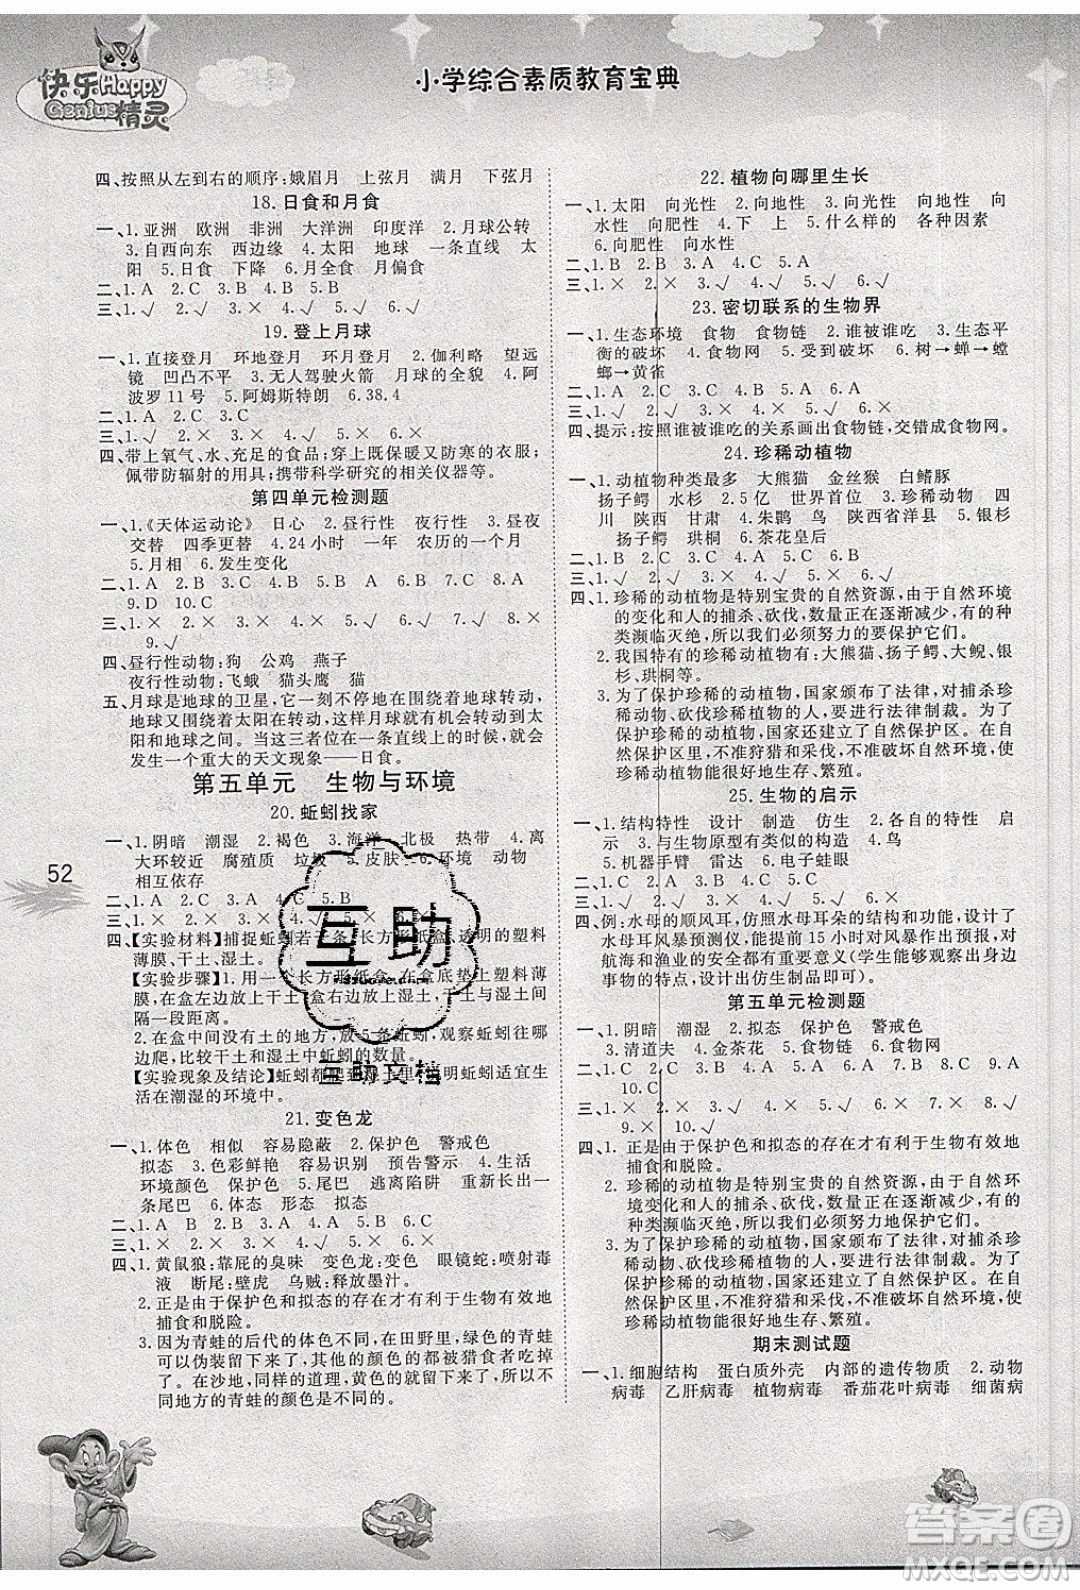 快乐Happy
Genius精灵
小学综合素质教育宝典
四、按照从左到右的顺序:娥眉月 上弦月 满月 下弦月
18.日食和月食
一、1.亚洲 欧洲 非洲 大洋洲 印度洋 2.月球公转
3.自西向东 西边缘 4.太阳 地球 一条直线 太
阳 5.日食 下降 6.月食 月偏食
二、1.A 2.C 3.A 4.B 5.B
三、1.√ 2.√ 3.× 4.√ 5.√ 6.√
19.登上月球
一、1.直接登月 环地登月 环月登月 2.伽利略 望远
镜 凹凸不平 3.无人驾驶火箭 月球的全貌 4.阿
波罗11号 5.阿姆斯特朗 6.38.4
二、1.A 2.C 3.C
三、1.√ 2.√ 3.× 4.√ 5.√ 6.×
四、带上氧气、水、充足的食品;穿上既保暖又防寒的衣服,
佩带防辐射的用具;携带科学研究的相关仪器等。
第四单元检测题
一、1.《天体运动论》 日心 2.昼行性 夜行性 3.昼夜
交替 四季更替 4.24小时 一年 农历的一个月
5.月相 6.发生变化
二、1.A 2.B 3.C 4.A 5.A 6.C 7.C 8.A
9.D 10.C
三、1.√ 2.× 3.× 4.√ 5.√ 6.√ 7.× 8.×
9.√
四、昼行性动物:狗 公鸡 燕子
夜行性动物:飞蛾 猫头鹰 猫
五、月球是地球的卫星,它一刻不停地在围绕着地球转动,
地球又围绕着太阳在转动,这样月球就会转动到太
阳和地球之间。当这三者位于一条直线上的时候,就会
发生一个重大的天文现象——日食。
第五单元 生物与环境
20.蚯蚓找家
一、1.阴暗 潮湿 2.褐色 3.海洋 北极 热带 4.离
大环较近 腐殖质 垃圾 5.皮肤 6.环境 动物
相互依存
二、1.A 2.C 3.A 4.C 5.B
三、1.× 2.× 3.× 4.√ 5.×
四、【实验材料】捕捉蚯蚓若干条、长方形纸盒、透明的塑料
薄膜、干土、湿土。
【实验步骤】1.用一个长方形纸盒,在盒底垫上塑料薄
膜,在盒左边放上干土,盒右边放上湿土,干土与湿土间
隔一段距离。
2.在盒中间没有土的地方,放5条蚯蚓,观察蚯蚓往哪
边去的多,比较干土与湿土中蚯蚓的数量。
【实验现象及结论】蚯蚓都爬到湿土里,说明蚯蚓适宜生活
在潮湿的环境中。
21.变色龙
一、1.体色 相似 容易隐蔽 2.保护色 警戒色
拟态 3.色彩鲜艳 容易识别 预告警示 4.生活
环境颜色 保护色 5.尾巴 逃离陷阱 重新长出一
条尾巴 6.体态 形态 拟态
二、1.A B 2.A B 3.A 4.A B
三、1.× 2.√ 3.× 4.√ 5.× 6.×
四、1.黄鼠狼:靠屁的臭味 变色龙:变色 眼镜蛇:喷射毒
液 断尾:壁虎 乌贼:释放墨汁。
2.正是由于保护色和拟态的存在才有利于生物有效地
捕食和脱险。
3.因为青蛙的后代的体色不同,在田野里,绿色的青蛙
可以伪装得很好,而其他的颜色的就被猎食者吃掉
了。在沙地,同样的道理,黄色的青蛙活了下来。所以不
同地方的青蛙的颜色是不同的。
22.植物向哪里生长
一、1.太阳 向光性 2.向地性 3.向光性 向地性 向
水性 向肥性 4.下 上 5.什么样的 各种因素
6.向肥性 向水性
二、1.B 2.B 3.B 4.C 5.A
三、1.× 2.× 3.√ 4.√ 5.√ 6.√
23.密切联系的生物界
一、1.生态环境 食物 食物链 2.谁被谁吃 3.生态平
衡的破坏 4.食物网 5.受到破坏 6.树→蝉→螳
螂→黄雀
二、1.C 2.B 3.A 4.C 5.A
三、1.√ 2.× 3.√ 4.× 5.√ 6.×
四、提示:按照谁被谁吃的关系画出食物链,交错成食物网。
24.珍稀动植物
一、1.动植物种类最多 大熊猫 金丝猴 白鳍豚
扬子鳄 水杉 2.5亿 世界首位 3.珍稀动物 四
川 陕西 甘肃 4.朱鹮 鸟 陕西省洋县 5.银杉
扬子鳄 珙桐 6.茶花皇后
二、1.B 2.C 3.A 4.C 5.A
三、1.√ 2.√ 3.× 4.√ 5.× 6.√
四、1.珍稀的动植物是特别宝贵的自然资源,由于自然环境
的变化和人的捕杀、砍伐,数量正在逐渐减少,有的种
类濒临灭绝,所以我们必须要保护它们。
2.我国特有的珍稀动植物有:大熊猫、扬子鳄、大鲵、银
杉、珙桐等。
3.为了保护珍稀的动植物,国家颁布了法律,对捕杀珍
稀动物、砍伐珍稀植物的人,要进行法律制裁。同时,
为了保护珍稀动植物,国家还建立了自然保护区。在
自然保护区里,不准狩猎和采伐,不准破坏自然环境,
使动植物能很好地生存、繁殖。
25.生物的启示
一、1.结构特性 设计 制造 仿生 2.各自的作用 启
示 3.与生物原型有类似的构造 4.鸟
5.机器手臂 雷达 6.电子蛙眼
二、1.C 2.A 3.C 4.B 5.A
三、1.× 2.√ 3.√ 4.√ 5.√ 6.×
四、例:水母的顺风耳,仿照水母耳朵的结构和功能,设计了
水母耳风暴预测仪,能提前15小时对风暴作出预报,对
航海和渔业的安全都有重要意义(学生能够观察出身边
事物的特点,设计出仿生制品即可)。
第五单元检测题
一、1.阴暗 潮湿 2.拟态 保护色 警戒色
3.清道夫 4.金茶花 5.食物链 6.食物网
二、1.C 2.A 3.A 4.C 5.B 6.C 7.A 8.C 9.A
10.C
三、1.× 2.× 3.√ 4.√ 5.× 6.√ 7.√ 8.√
9.× 10.×
四、1.正是由于保护色和拟态的存在才有利于生物有效地
捕食和脱险。
2.珍稀的动植物是特别宝贵的自然资源,由于自然环
境变化和人的捕杀、砍伐,数量正在逐渐减少,有的
种类濒临灭绝,所以我们必须要保护它们。
3.为了保护珍稀的动植物,国家颁布了法律,对捕杀珍
稀动物、砍伐珍稀植物的人,要进行法律制裁。同时,
为了保护珍稀动植物,国家还建立了自然保护区。在
自然保护区里,不准狩猎和采伐,不准破坏自然环
境,使动植物能很好地生存、繁殖。
期末测试题
一、1.细胞结构 蛋白质外壳 内部的遗传物质 2.动物
病毒 乙肝病毒 植物病毒 番茄花叶病毒 细菌病
52
互助
互助文档
答案圈
MXQE.COM